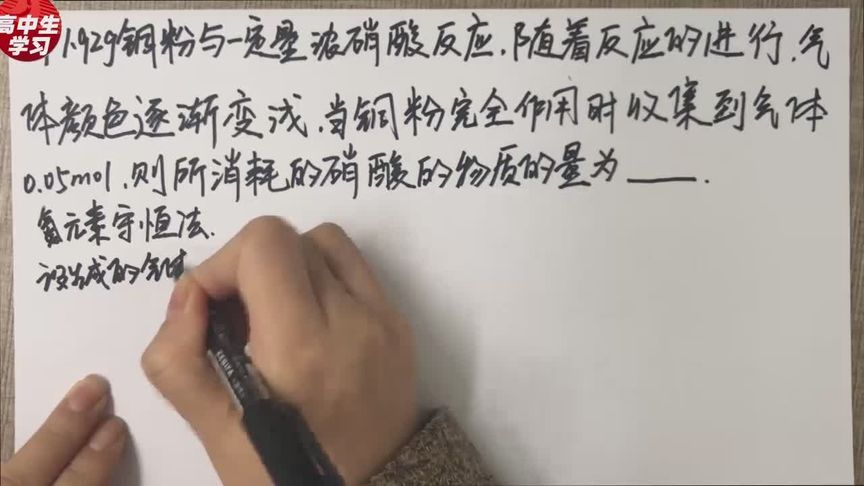 高中生
学习
1.92g铜粉与一定量浓硝酸反应,随着反应的进行,气
体颜色逐渐变浅,当铜粉完全作用时收集到气体
0.05mol,则所消耗的硝酸的物质的量为____.
氮元素守恒法.
设生成的气体